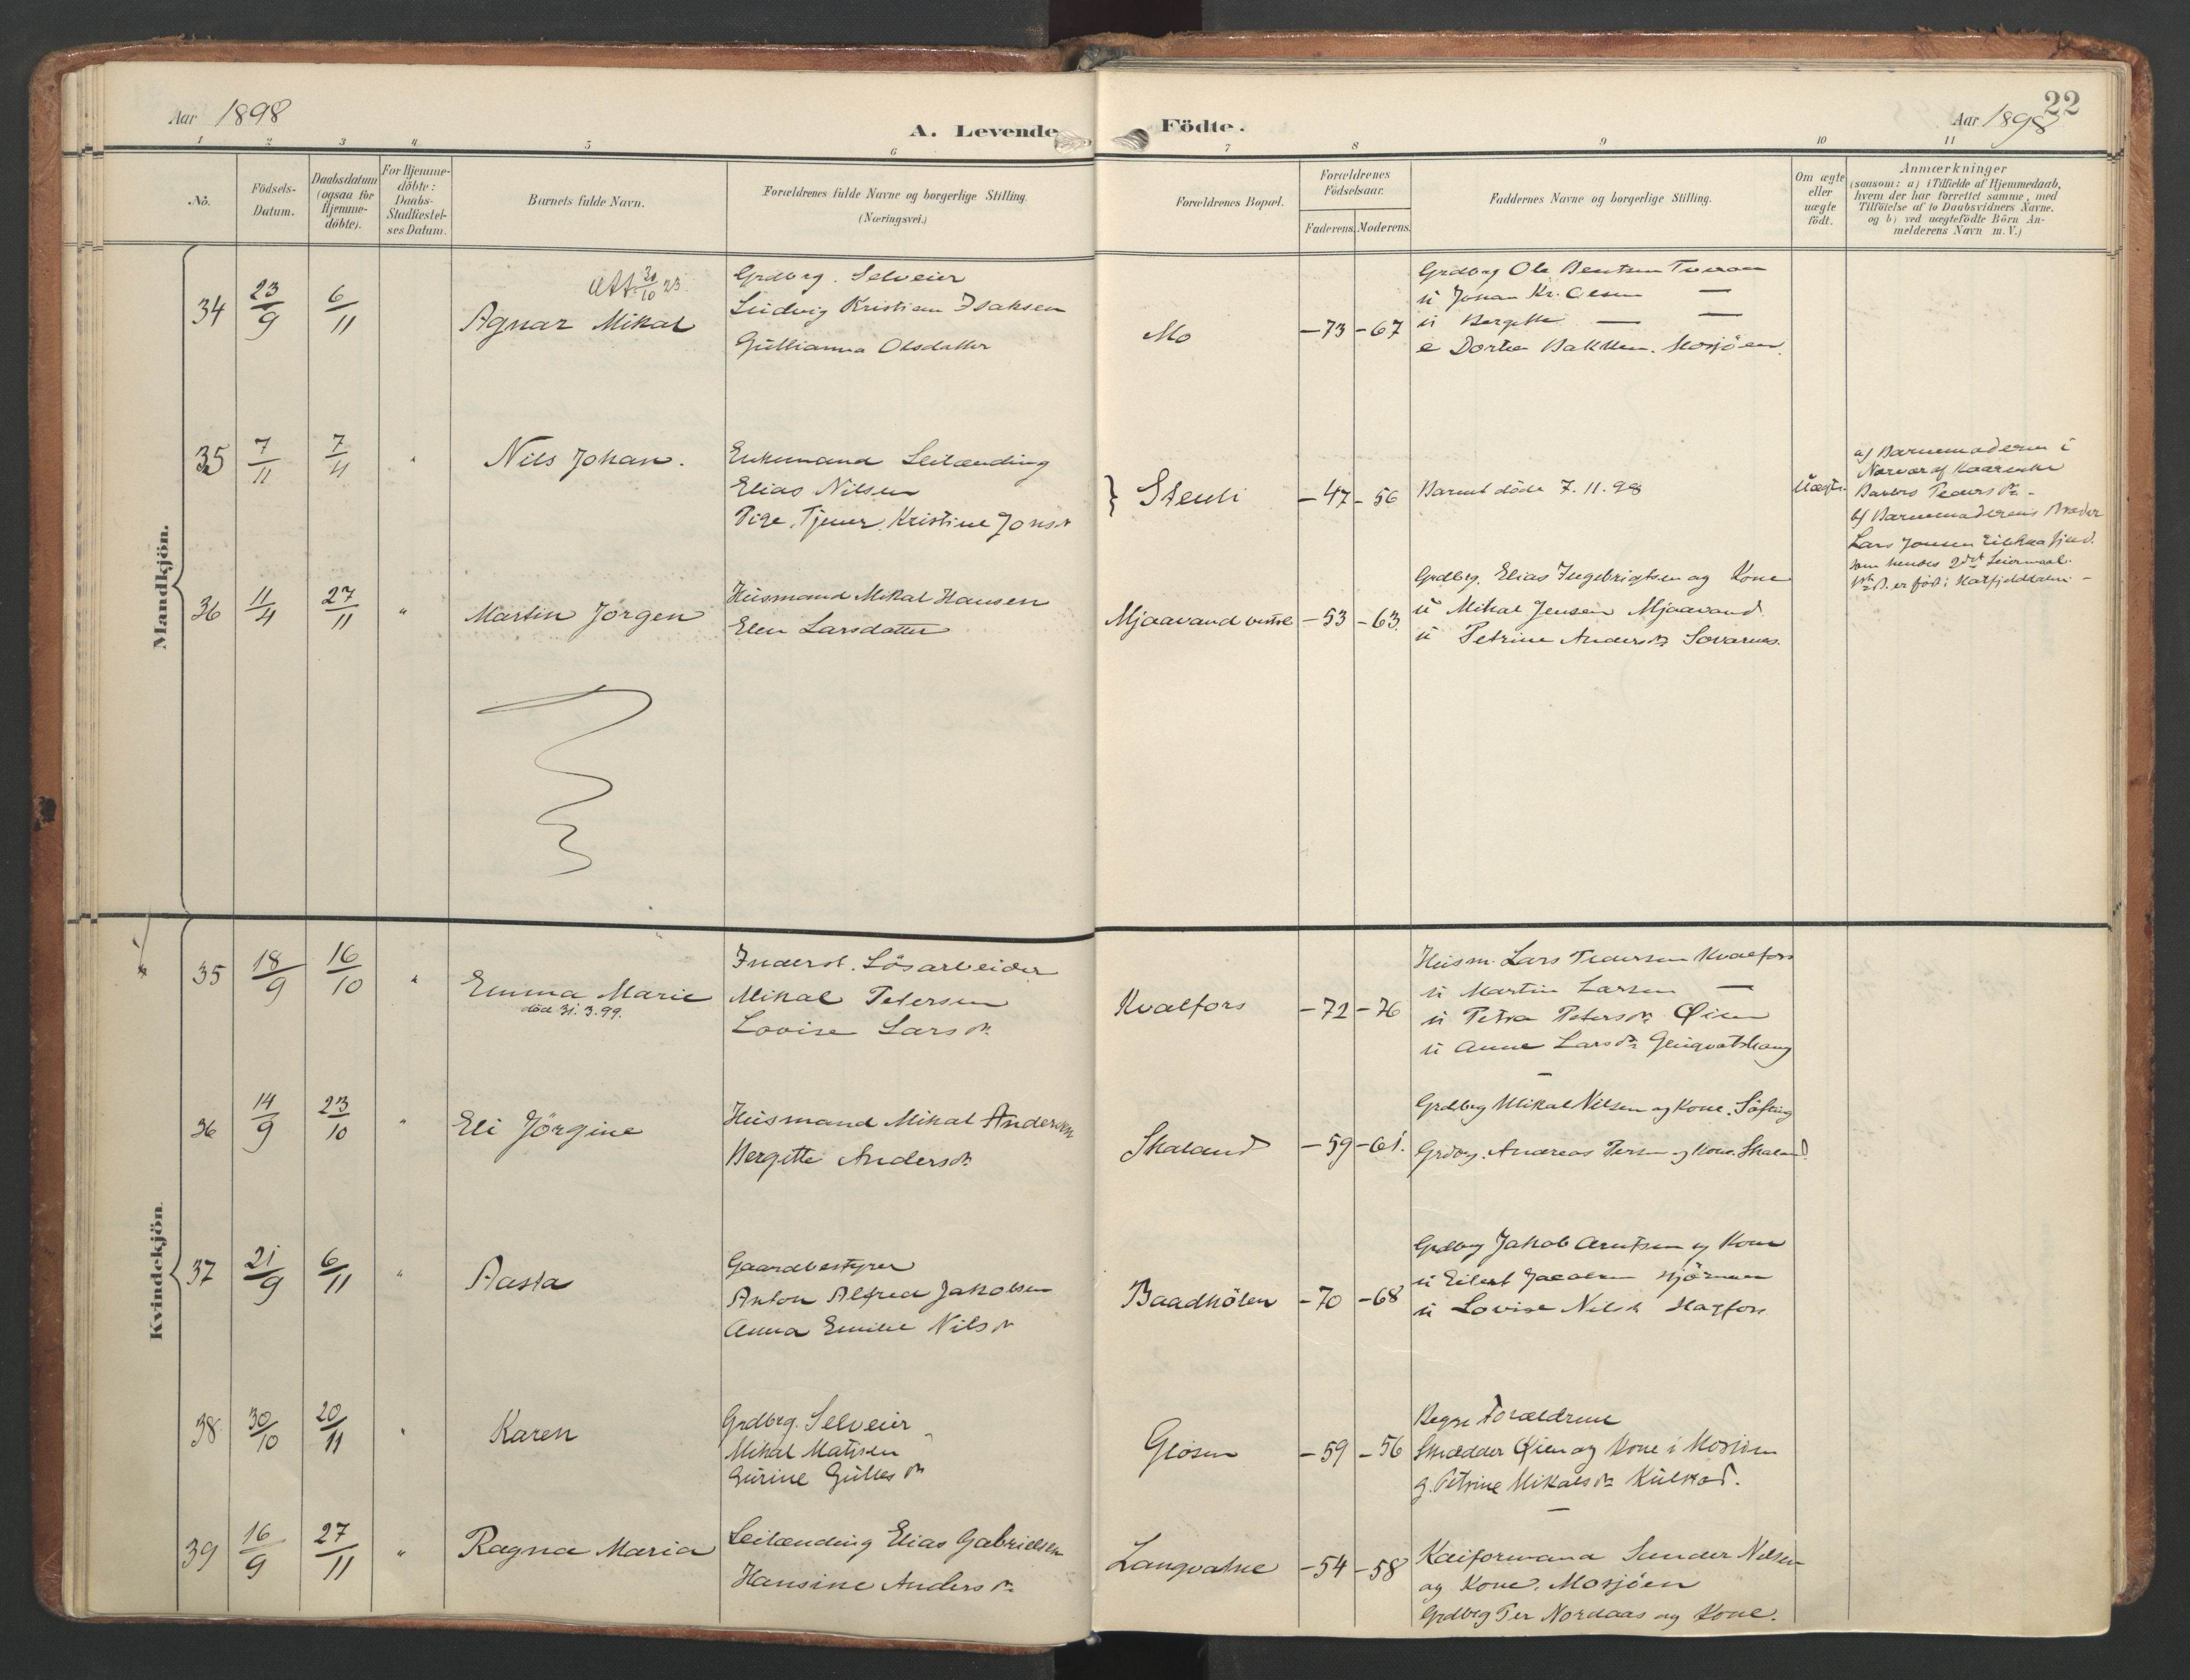 Aar 1898
A. Levende Födte.
22
Aar 1898
1 2 3 4 5 6 7 8 9 10 11
No.
Födsels-Datum.
Daabsdatum (ogsaa for Hjemme-döbte).
For Hjemme-döbte: Daabs-Stadfæstel-ses Datum.
Barnets fulde Navn.
Forældrenes fulde Navne og borgerlige Stilling.
(Næringsvei.)
Forældrenes Bopæl.
Forældrenes Födselsaar.
Faderens. Moderens.
Faddernes Navne og borgerlige Stilling.
Om ægte eller uægte födt.
Anmærkninger
(saasom: a) i Tilfælde af Hjemmedaab,
hvem der har forrettet samme, med
Tilföielse af to Daabsvidners Navne.
og b) ved uægtefödte Börn An-
melderens Navn m. V.)
Mandkjön.
34 23/9 6/11
Att. 30/10 23.
Agnar Mikal
Grdbrg. Selveier
Ludvig Kristian Isaksen
Gullianna Olsdatter
Mo
-73 -67
Grdbrg Ole Bentsen
u Johan Kr. Olsen —
u Bergitte — —
e Dortea Bakken. Mosjöen.
35 7/11 7/11 "
Nils Johan.
Enkemand Leilænding
Elias Nilsen
Pige, Tjener, Kristine Jonsdr
} Stenli
-47 -56
Barnet döde 7.11.98
Uægte.
a) Barnemoderen i
Nærvær af
Pedersdr. -
b) Barnemoderens Broder
Lars Jonsen
som hendes 2det Leiermaal.
er född i Hatfjelddalen -
36 11/4 27/11 "
Martin Jörgen
Husmand Mikal Hansen
Elen Larsdatter
Mjaavand
-53 -63.
Grdbrg. Elias Ingebrigtsen og Kone
u Mikal Jensen Mjaavand
u Petrine Andersdr
Kvindekjön.
35 18/9 16/10 "
Emma Marie
död 31.3.99.
Inderst. Lösarbeider
Mikal Petersen
Lovise Larsdr.
Kvalfors
-72 -76
Husm. Lars Pedersen Kvalfors
u Martin Larsen —
u Petra Petersdr Öien
u Anne Larsdr
36 14/9 23/10 "
Eli Jörgine
Husmand Mikal Andersen
Bergitte Andersdr
Skaland
-59 -61.
Grdbrg Mikal Nilsen og Kone. Söfting
Grdbrg. Andreas Persen og Kone. Skaland.
37 21/9 6/11 "
Aasta
Gaardbestyrer
Anton Alfred Jakobsen
Anna Emilie Nilsdr
Baadhölen
-70 -68
Grdbrg Jakob Arntsen og Kone
u Eilert Jacobsen
u Lovise Nilsdr
38 30/10 20/11 "
Karen
Grdbrg. Selveier
Mikal Matisen
Gurine Gullesdr
Glosen
-59 -56
Begge Forældrene
Skrædder Öien og Kone i Mosjöen
g. Petrine Mikalsdr Kulstad.
39 16/9 27/11 "
Ragna Maria
Leilænding Elias Gabrielsen
Hansine Andersdr.
Langvatne
-54 -58
Kaiformand Sunder Nilsen
og Kone. Mosjöen
Grdbrg Per Nordaas og Kone.